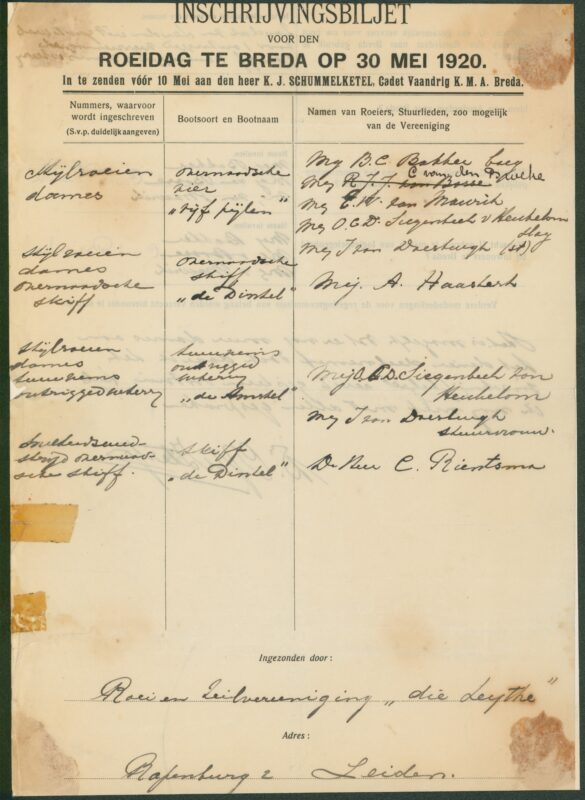 INSCHRIJVINGSBILJET
VOOR DEN
ROEIDAG TE BREDA OP 30 MEI 1920.
In te zenden vóór 10 Mei aan den heer K. J. SCHUMMELKETEL, Cadet Vaandrig K. M. A. Breda.
Nummers, waarvoor wordt ingeschreven (S.v.p. duidelijk aangeven)
Bootsoort en Bootnaam
Namen van Roeiers, Stuurlieden, zoo mogelijk van de Vereeniging
Stijlroeien
dames
overnaadsche
vier
„vijf pijlen"
Mej B.C. Bakker boeg
Mej R.J.J. van Bosse C van den Broeke
Mej E.W. van
Mej O.C.D. Siegenbeek v Heukelom
slag
Mej J van Doesburgh (st)
Stijlroeien
dames
overnaadsche
skiff
overnaadsche
skiff
„de Dintel"
Mej. A. Haastert
Stijlroeien
dames
tweeriems
outrigged wherry
tweeriems
outrigged
wherry
„de Amstel"
Mej O.C.D. Siegenbeek van
Heukelom
Mej J van Doesburgh
stuurvrouw.
strijd
skiff.
skiff
„de Dintel"
De Heer C. Rientsma
Ingezonden door:
Roei en Zeilvereeniging „die Leythe"
Adres:
Rapenburg 2 Leiden.